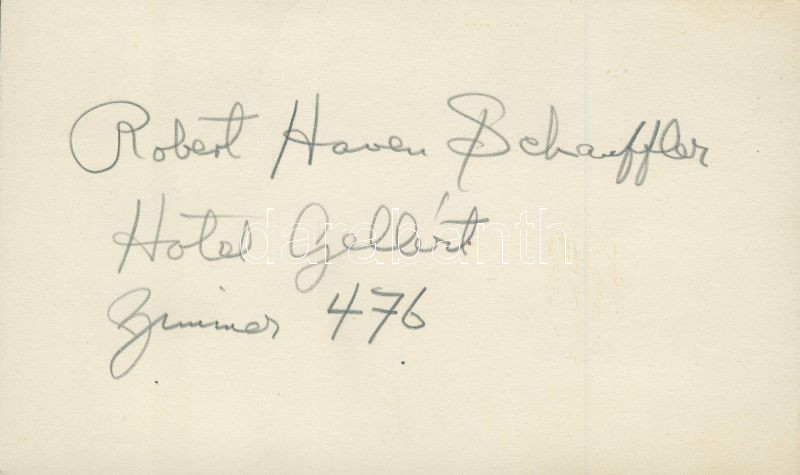 Robert Haven Schauffler
Hotel Gellért
Zimmer 476
darabanth